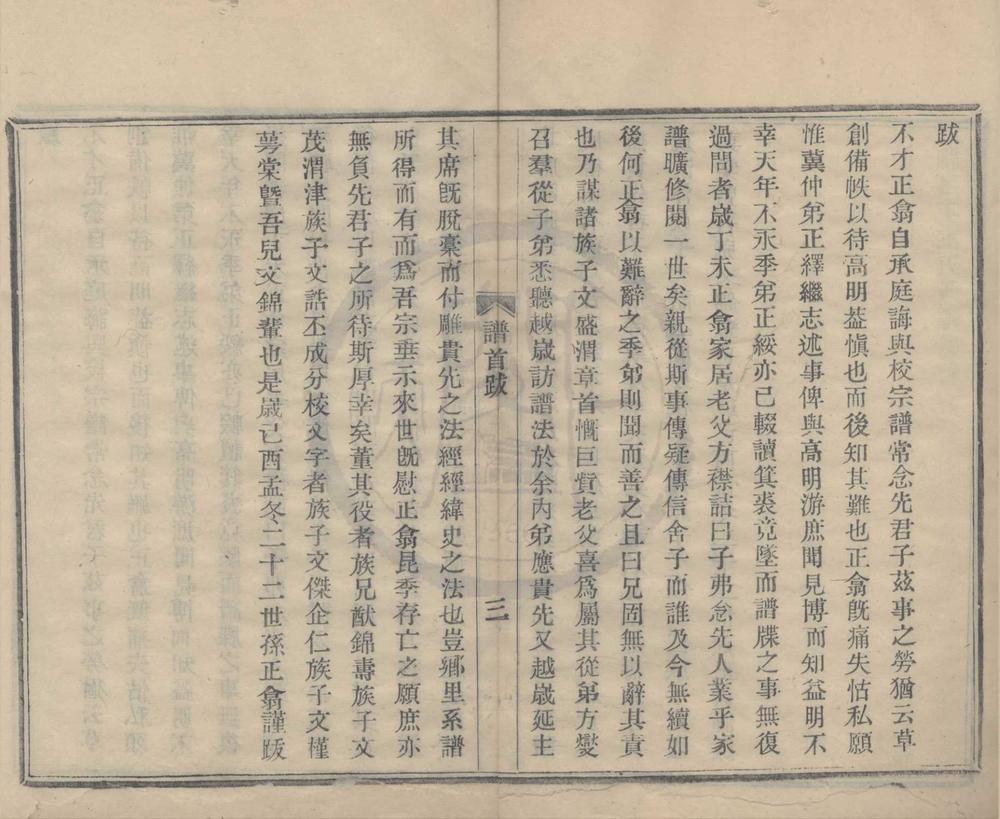 跋
不才正翕自承庭誨與校宗譜常念先君子茲事之勞猶云草
創備帙以待高明葢愼也而後知其難也正翕旣痛失怙私願
惟冀仲弟正繹繼志述事俾與高明游庶聞見博而知益明不
幸天年不永季弟正綏亦已輟讀箕裘竟墜而譜牒之事無復
過問者歲丁未正翕家居老父方襟詰曰子弗念先人業乎家
譜曠修閱一世矣親從斯事傳疑傳信舍子而誰及今無續如
後何正翕以難辭之季弟則聞而善之且曰兄固無以辭其責
也乃謀諸族子文盛渭章首慨巨貲老父喜爲屬其從弟方燮
召羣從子弟悉聽越歲訪譜法於余內弟應貴先又越歲延主
譜首跋
三
其席旣脫稾而付雕貴先之法經經緯史之法也豈鄉里系譜
所得而有而爲吾宗垂示來世旣慰正翕昆季存亡之願庶亦
無負先君子之所待斯厚幸矣董其役者族兄猷錦壽族子文
茂渭津族子文誥丕成分校文字者族子文傑企仁族子文槿
蕚棠曁吾兒文錦輩也是歲己酉孟冬二十二世孫正翕謹跋